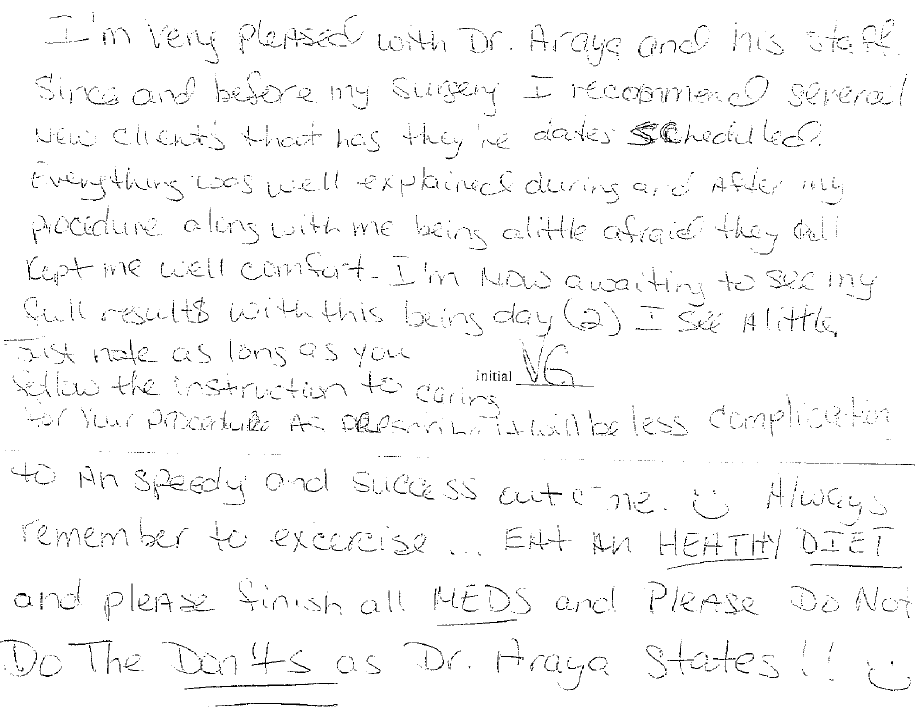 I'm very pleased with Dr. Araya and his staff.
Since and before my surgery I recommend several
New clients that has they're dates scheduled.
Everything was well explained during and after my
procedure along with me being alittle afraid they all
kept me well comfort. I'm now awaiting to see my
full results with this being day (2) I see alittle,
Just note as long as you
follow the instruction to caring
Initial VG
for your procedure it will be less complication
to an speedy and success outcome. Always
remember to excercise... EAt AN HEATHY DIET
and please finish all MEDS and PLEASE DO NOT
Do The Don'ts as Dr. Araya States!!